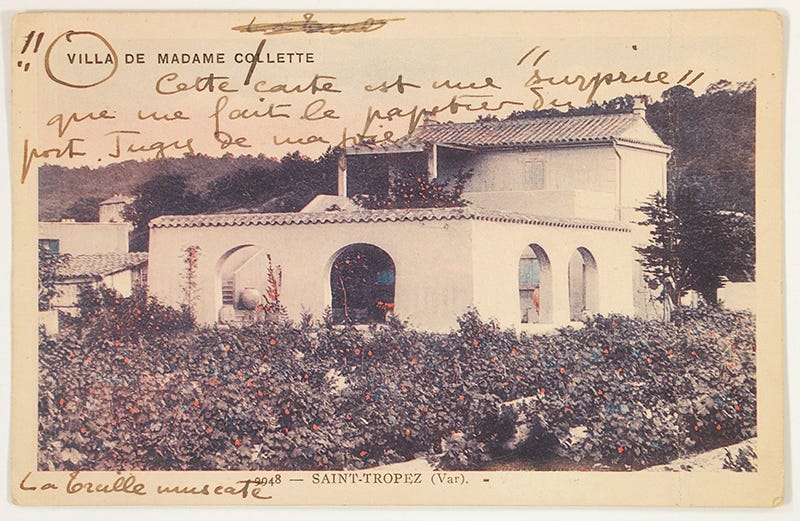 !! VILLA DE MADAME COLLETTE
Cette carte est une "surprise"
que me fait le papetier du
port. de ma
La Treille muscate — SAINT-TROPEZ (Var). -